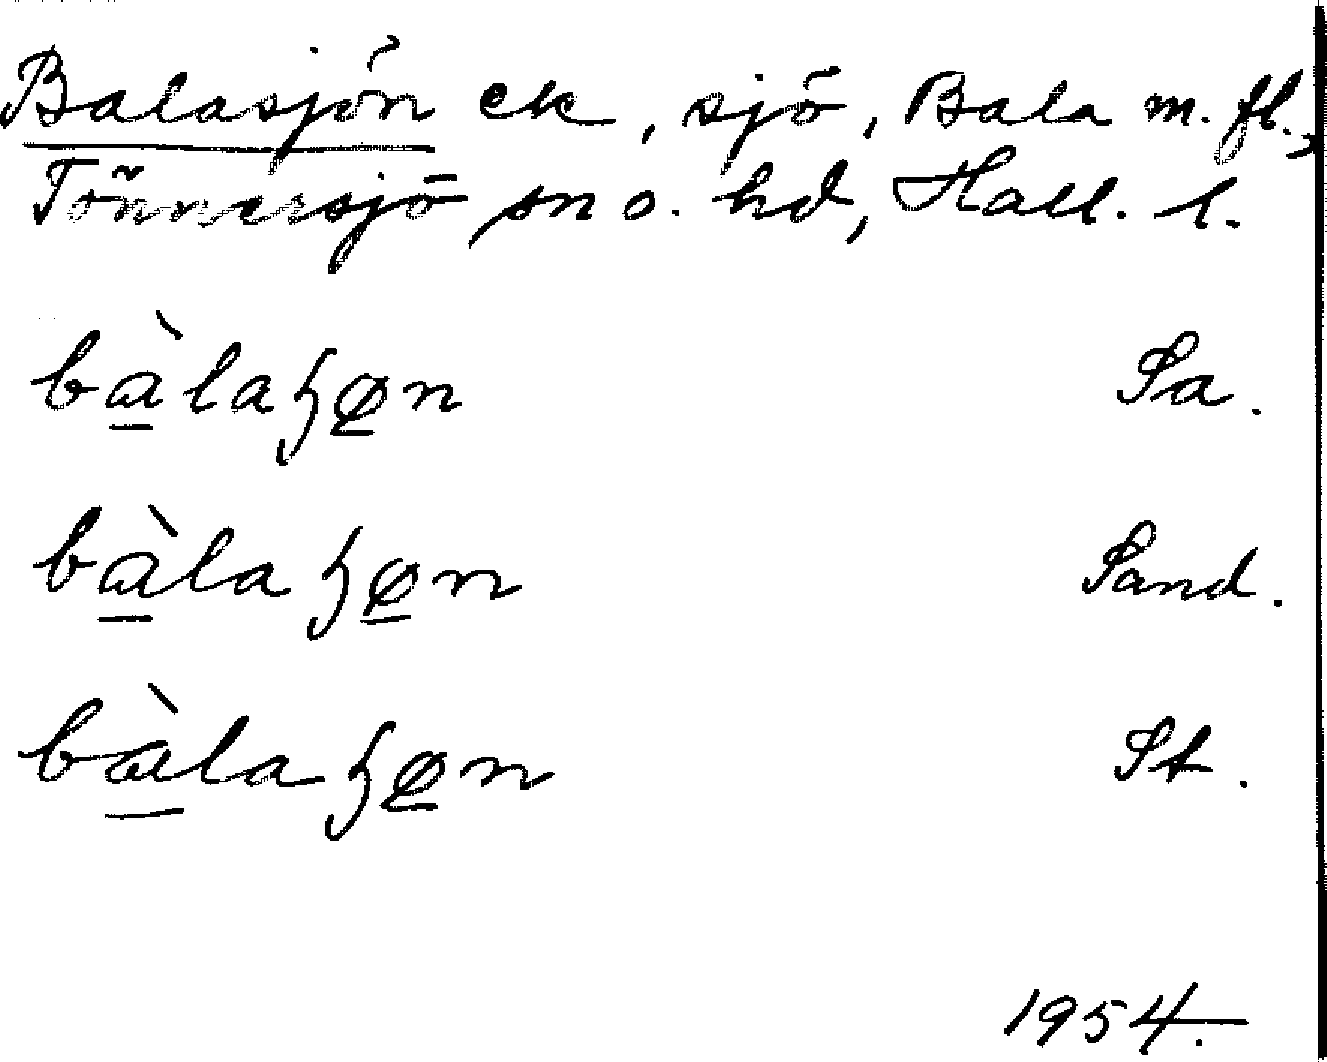 Balasjön ek, sjö, Bala m. fl.,
Tönnersjö sn o. hd, Hall. l.
bà̱laꜧø̱n Sa.
bà̱laꜧø̱n Sand.
bà̱laꜧø̱n St.
1954.